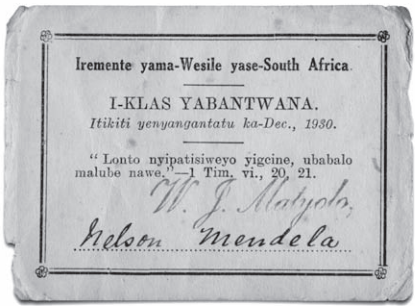 Iremente yama-Wesile yase-South Africa
I-KLAS YABANTWANA.
Itikiti yenyangantatu ka-Dec., 1930.
“ Lonto nyipatisiweyo yigcine, ubabalo
malube nawe.”—1 Tim. vi., 20, 21.
W. J. Matyolo,
Nelson Mendela